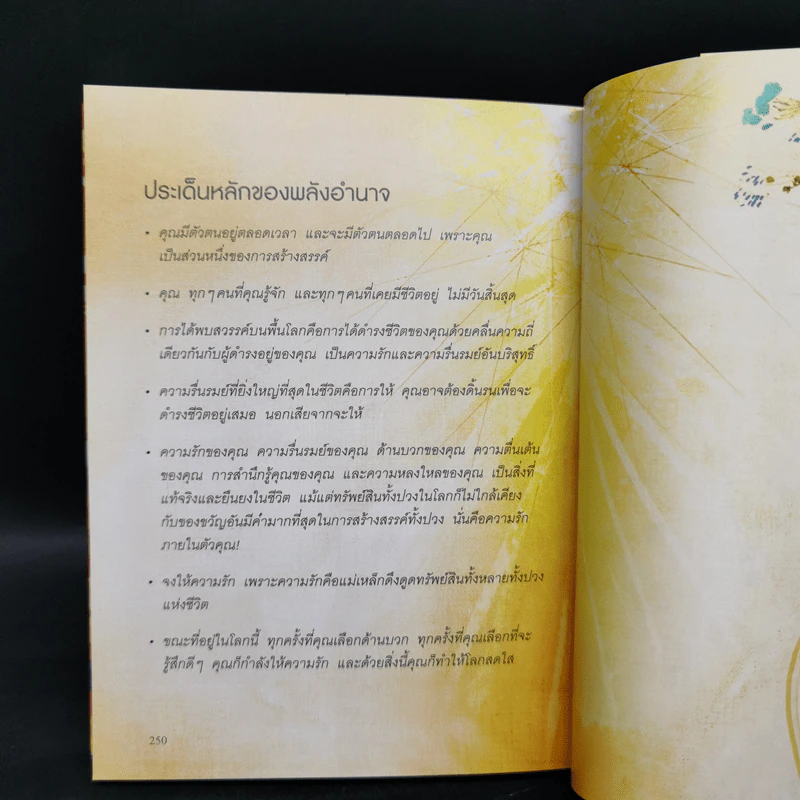 ประเด็นหลักของพลังอำนาจ
• คุณมีตัวตนอยู่ตลอดเวลา และจะมีตัวตนตลอดไป เพราะคุณ
เป็นส่วนหนึ่งของการสร้างสรรค์
• คุณ ทุกๆคนที่คุณรู้จัก และทุกๆคนที่เคยมีชีวิตอยู่ ไม่มีวันสิ้นสุด
• การได้พบสวรรค์บนพื้นโลกคือการได้ดำรงชีวิตของคุณด้วยคลื่นความถี่
เดียวกันกับผู้ดำรงอยู่ของคุณ เป็นความรักและความรื่นรมย์อันบริสุทธิ์
• ความรื่นรมย์ที่ยิ่งใหญ่ที่สุดในชีวิตคือการให้ คุณอาจต้องดิ้นรนเพื่อจะ
ดำรงชีวิตอยู่เสมอ นอกเสียจากจะให้
• ความรักของคุณ ความรื่นรมย์ของคุณ ด้านบวกของคุณ ความตื่นเต้น
ของคุณ การสำนึกรู้คุณของคุณ และความหลงใหลของคุณ เป็นสิ่งที่
แท้จริงและยืนยงในชีวิต แม้แต่ทรัพย์สินทั้งปวงในโลกก็ไม่ใกล้เคียง
กับของขวัญอันมีค่ำมากที่สุดในการสร้างสรรค์ทั้งปวง นั่นคือความรัก
ภายในตัวคุณ!
• จงให้ความรัก เพราะความรักคือแม่เหล็กดึงดูดทรัพย์สินทั้งหลายทั้งปวง
แห่งชีวิต
• ขณะที่อยู่ในโลกนี้ ทุกครั้งที่คุณเลือกด้านบวก ทุกครั้งที่คุณเลือกที่จะ
รู้สึกดีๆ คุณก็กำลังให้ความรัก และด้วยสิ่งนี้คุณก็ทำให้โลกสดใส
250